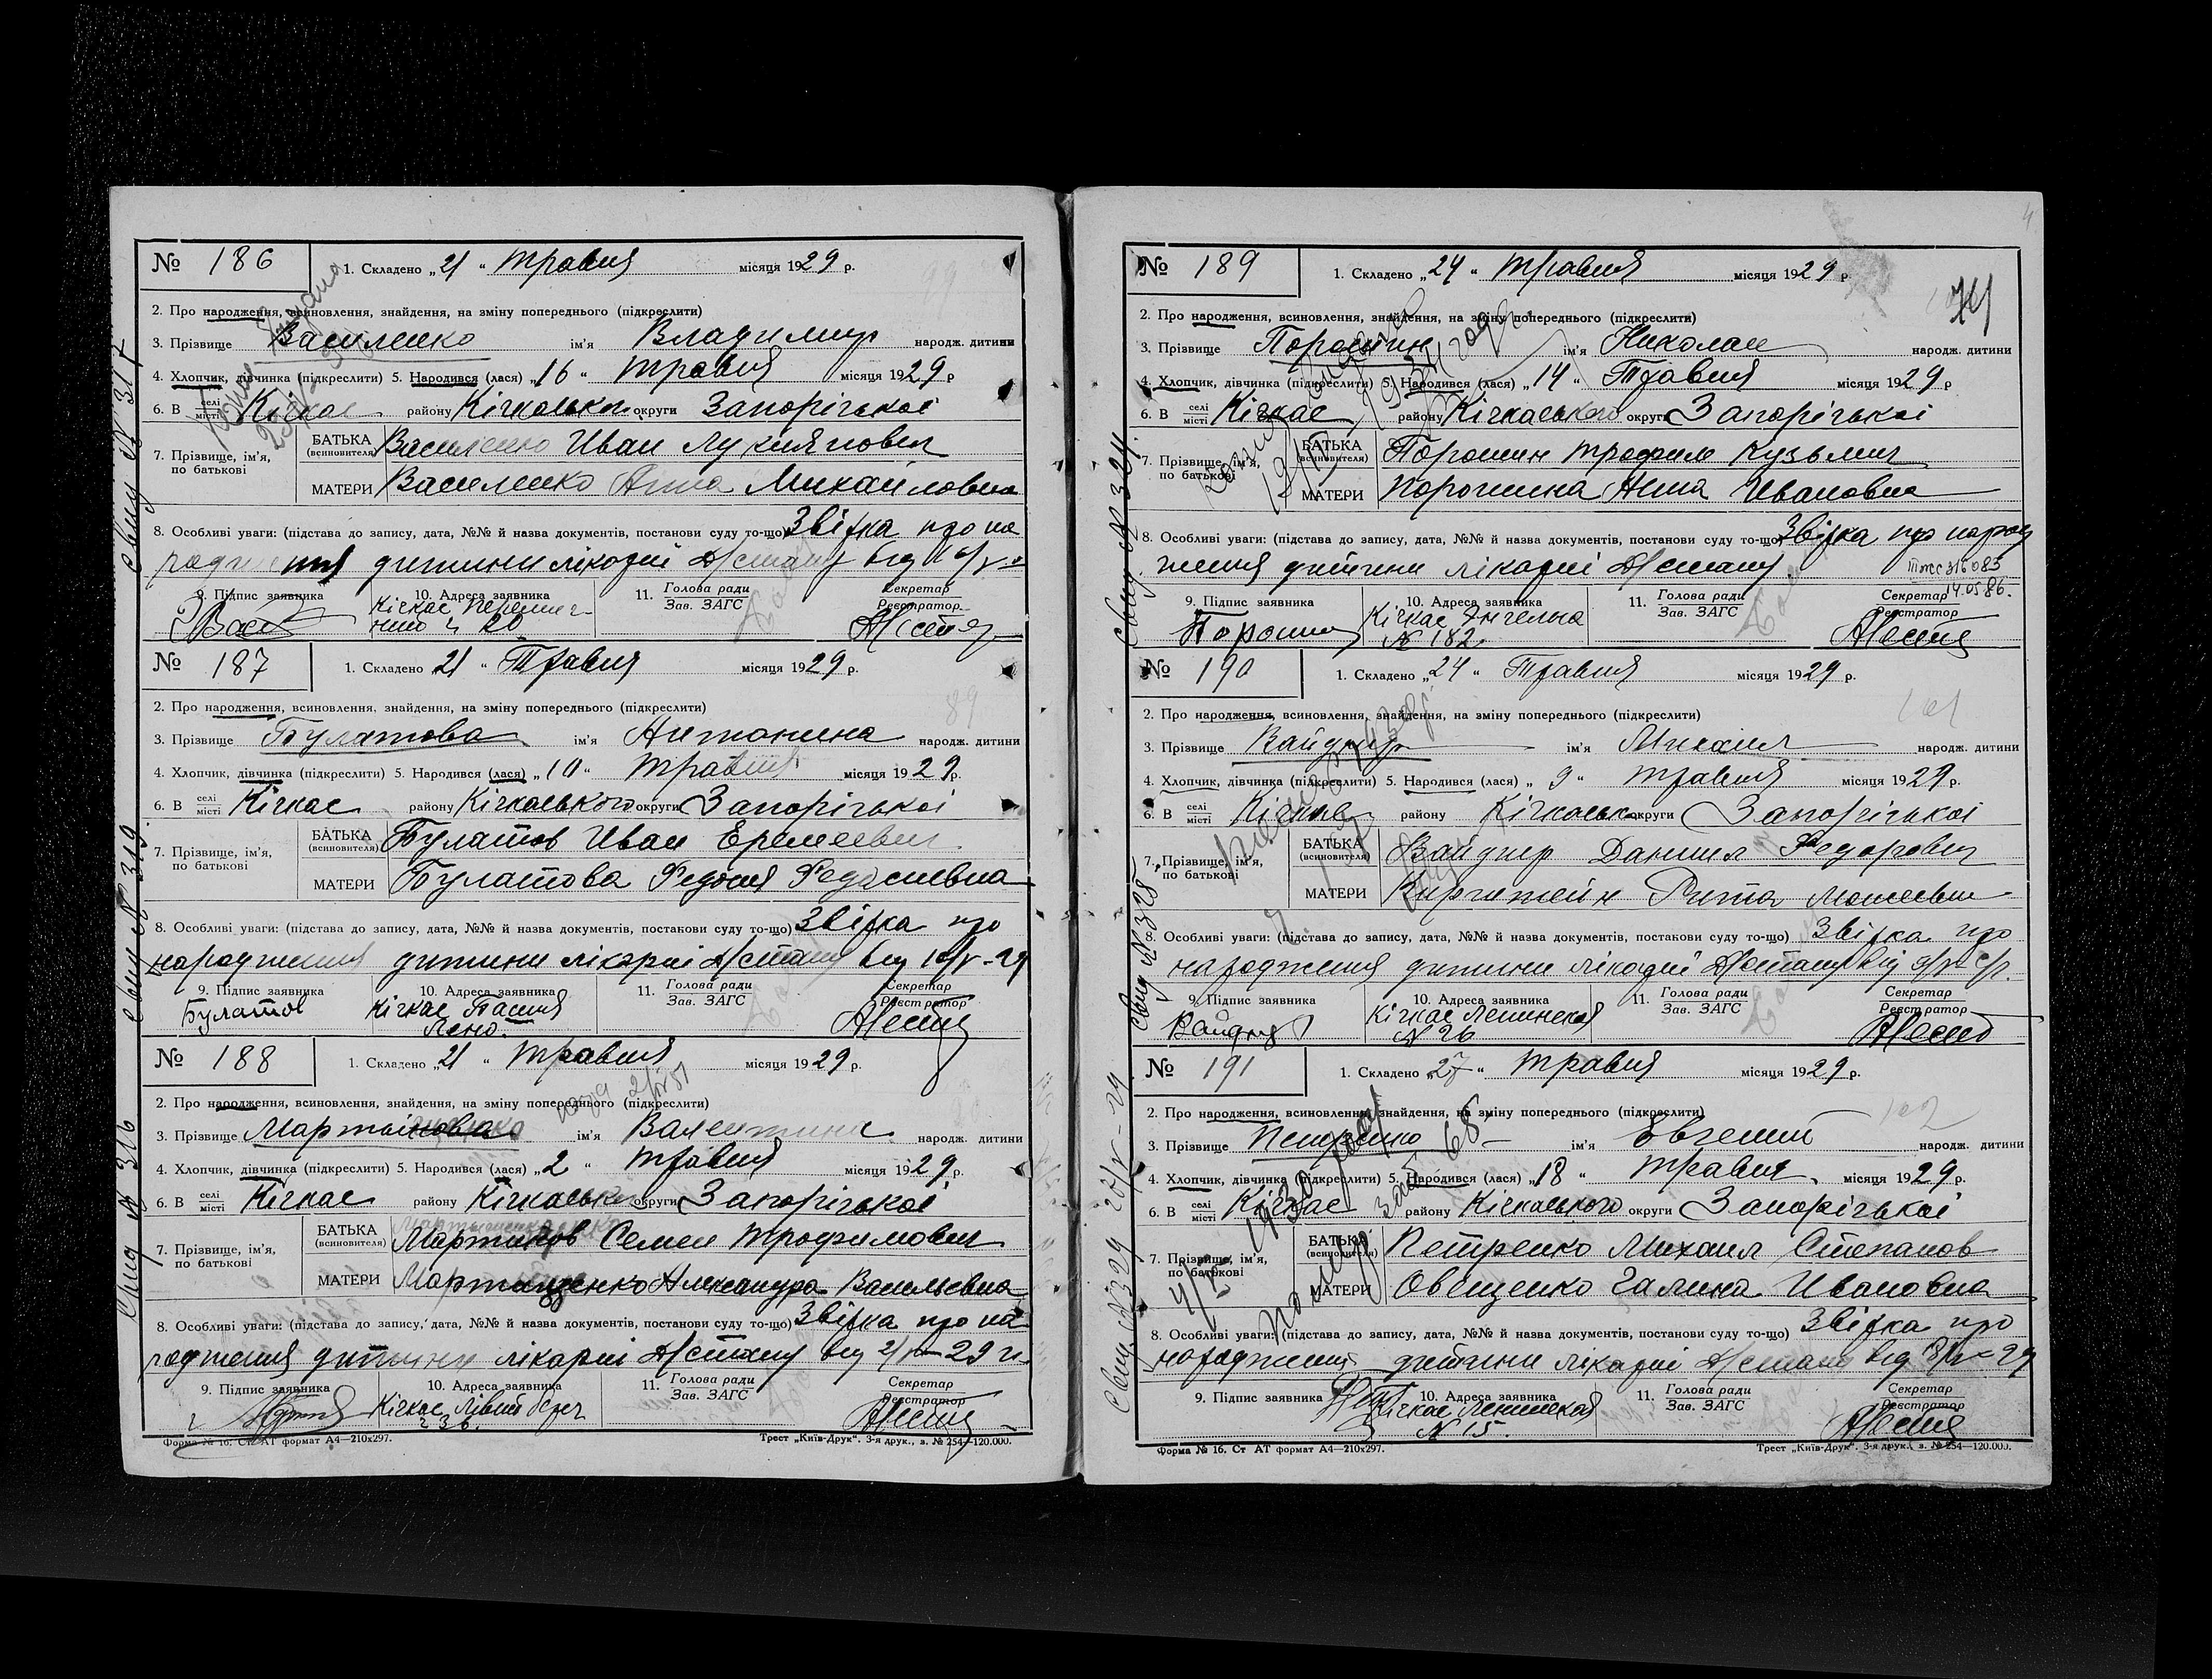 № 186
1. Складено „21“ травня місяця 1929 р.
2. Про народження, всиновлення, знайдення, на зміну попереднього (підкреслити)
3. Прізвище Василенко ім'я Владимир народж. дитини
4. Хлопчик, дівчинка (підкреслити) 5. Народився (лася) „16“ травня місяця 1929 р
6. В селі місті Кічкас району Кічкаського округи Запорізької
7. Прізвище, ім'я, по батькові
БАТЬКА (всиновителя) Василенко Иван Лукиянович
МАТЕРИ Василенко Анна Михайловна
8. Особливі уваги: (підстава до запису, дата, №№ й назва документів, постанови суду то-що) Звістка про на
родження дитини лікарні
9. Підпис заявника 10. Адреса заявника 11. Голова ради Зав. ЗАГС Секретар Реєстратор
Кічкас
№ 187
1. Складено „21“ Травня місяця 1929 р.
2. Про народження, всиновлення, знайдення, на зміну попереднього (підкреслити)
3. Прізвище Булатова ім'я Антонина народж. дитини
4. Хлопчик, дівчинка (підкреслити) 5. Народився (лася) „10“ травня місяця 1929 р.
6. В селі місті Кічкас району Кічкаського округи Запорізької
7. Прізвище, ім'я, по батькові
БАТЬКА (всиновителя) Булатов Иван Еремеевич
МАТЕРИ Булатова Федосия
8. Особливі уваги: (підстава до запису, дата, №№ й назва документів, постанови суду то-що) Звістка про
народження дитини лікарні
9. Підпис заявника 10. Адреса заявника 11. Голова ради Зав. ЗАГС Секретар Реєстратор
Булатов Кічкас
№ 188
1. Складено „21“ травня місяця 1929 р.
2. Про народження, всиновлення, знайдення, на зміну попереднього (підкреслити)
3. Прізвище ім'я Валентина народж. дитини
4. Хлопчик, дівчинка (підкреслити) 5. Народився (лася) „2“ травня місяця 1929 р.
6. В селі місті Кічкас району Кічкаського округи Запорізької
7. Прізвище, ім'я, по батькові
БАТЬКА (всиновителя) Семен Трофимович
МАТЕРИ Александра Васильевна
8. Особливі уваги: (підстава до запису, дата, №№ й назва документів, постанови суду то-що) Звістка про на
родження дитини лікарні
9. Підпис заявника 10. Адреса заявника 11. Голова ради Зав. ЗАГС Секретар Реєстратор
Кічкас
Форма № 16. Ст. АТ формат А4—210х297. Трест „Київ-Друк“. 3-я друк., з. № 254—120.000.
№ 189
1. Складено „24“ травня місяця 1929 р.
2. Про народження, всиновлення, знайдення, на зміну попереднього (підкреслити)
3. Прізвище Порошин ім'я Николай народж. дитини
4. Хлопчик, дівчинка (підкреслити) 5. Народився (лася) „14“ Травня місяця 1929 р
6. В селі місті Кічкас району Кічкаського округи Запорізької
7. Прізвище, ім'я, по батькові
БАТЬКА (всиновителя) Порошин Трофим Кузьмич
МАТЕРИ Порошина Анна Ивановна
8. Особливі уваги: (підстава до запису, дата, №№ й назва документів, постанови суду то-що) Звістка про народ
ження дитини лікарні
14.05.86.
9. Підпис заявника 10. Адреса заявника 11. Голова ради Зав. ЗАГС Секретар Реєстратор
Порошин Кічкас Энгельса
№ 182.
№ 190
1. Складено „24“ Травня місяця 1929 р.
2. Про народження, всиновлення, знайдення, на зміну попереднього (підкреслити)
3. Прізвище Вайднер ім'я Михаил народж. дитини
4. Хлопчик, дівчинка (підкреслити) 5. Народився (лася) „9“ травня місяця 1929 р.
6. В селі місті Кічкас району Кічкаськ округи Запорізької
7. Прізвище, ім'я, по батькові
БАТЬКА (всиновителя) Вайднер Даниил Федорович
МАТЕРИ Рита Моисеевна
8. Особливі уваги: (підстава до запису, дата, №№ й назва документів, постанови суду то-що) Звістка про
народження дитини лікарні
9. Підпис заявника 10. Адреса заявника 11. Голова ради Зав. ЗАГС Секретар Реєстратор
Вайднер Кічкас Ленинская
№ 26
№ 191
1. Складено „27“ травня місяця 1929 р.
2. Про народження, всиновлення, знайдення, на зміну попереднього (підкреслити)
3. Прізвище Петренко ім'я Евгений народж. дитини
4. Хлопчик, дівчинка (підкреслити) 5. Народився (лася) „18“ травня місяця 1929 р.
6. В селі місті Кічкас району Кічкаського округи Запорізької
7. Прізвище, ім'я, по батькові
БАТЬКА (всиновителя) Петренко Михаил Степанов
МАТЕРИ Овещенко Галина Ивановна
8. Особливі уваги: (підстава до запису, дата, №№ й назва документів, постанови суду то-що) Звістка про
народження дитини лікарні
9. Підпис заявника 10. Адреса заявника 11. Голова ради Зав. ЗАГС Секретар Реєстратор
Кічкас Ленинская
№ 15.
Форма № 16. Ст АТ формат А4—210х297. Трест „Київ-Друк“. 3-я друк., з. № 254—120.000.